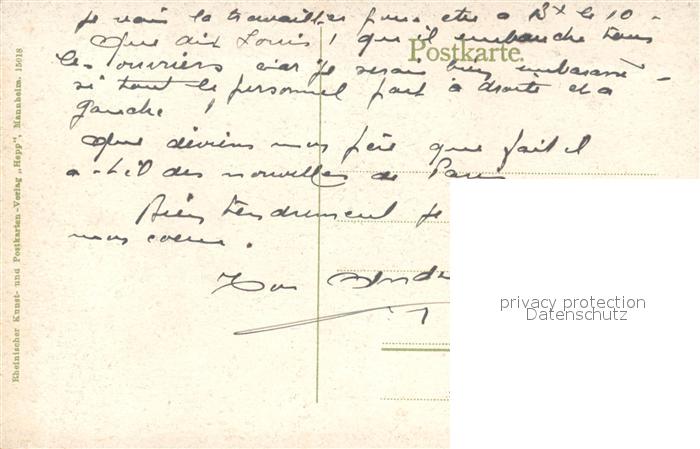 je vais la travailler pour etre a Bx le 10 -
Que dit Louis ! que il embauche tous
Postkarte.
les ouvriers car je serais bien embarassé -
si tout le personnel part à droite et a
gauche !
Que deviens mon père que fait il
a-t-il des nouvelles de Paris
Bien tendrement je
mon coeur.
Ton
privacy protection
Datenschutz
Rheinischer Kunst- und Postkarten-Verlag „Hepp", Mannheim. 15018